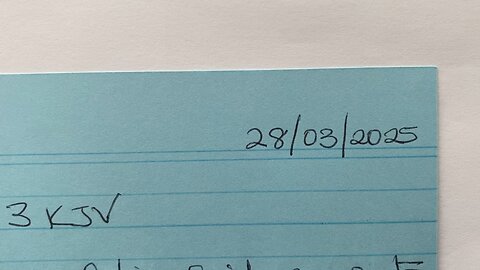 28/03/2025
3 KJV